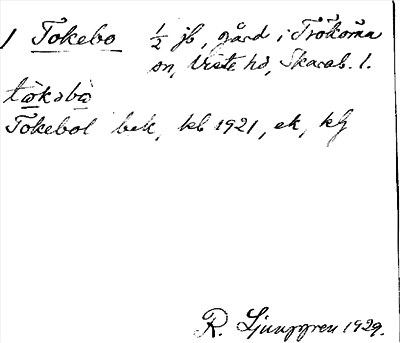 1 Tokebo ½ jb, gård i Trökörna
sn, Viste hd, Skarab. l.
tὼkəbὼ
Tokebol bek, kb 1921, ek, kg
R. Ljunggren 1929.